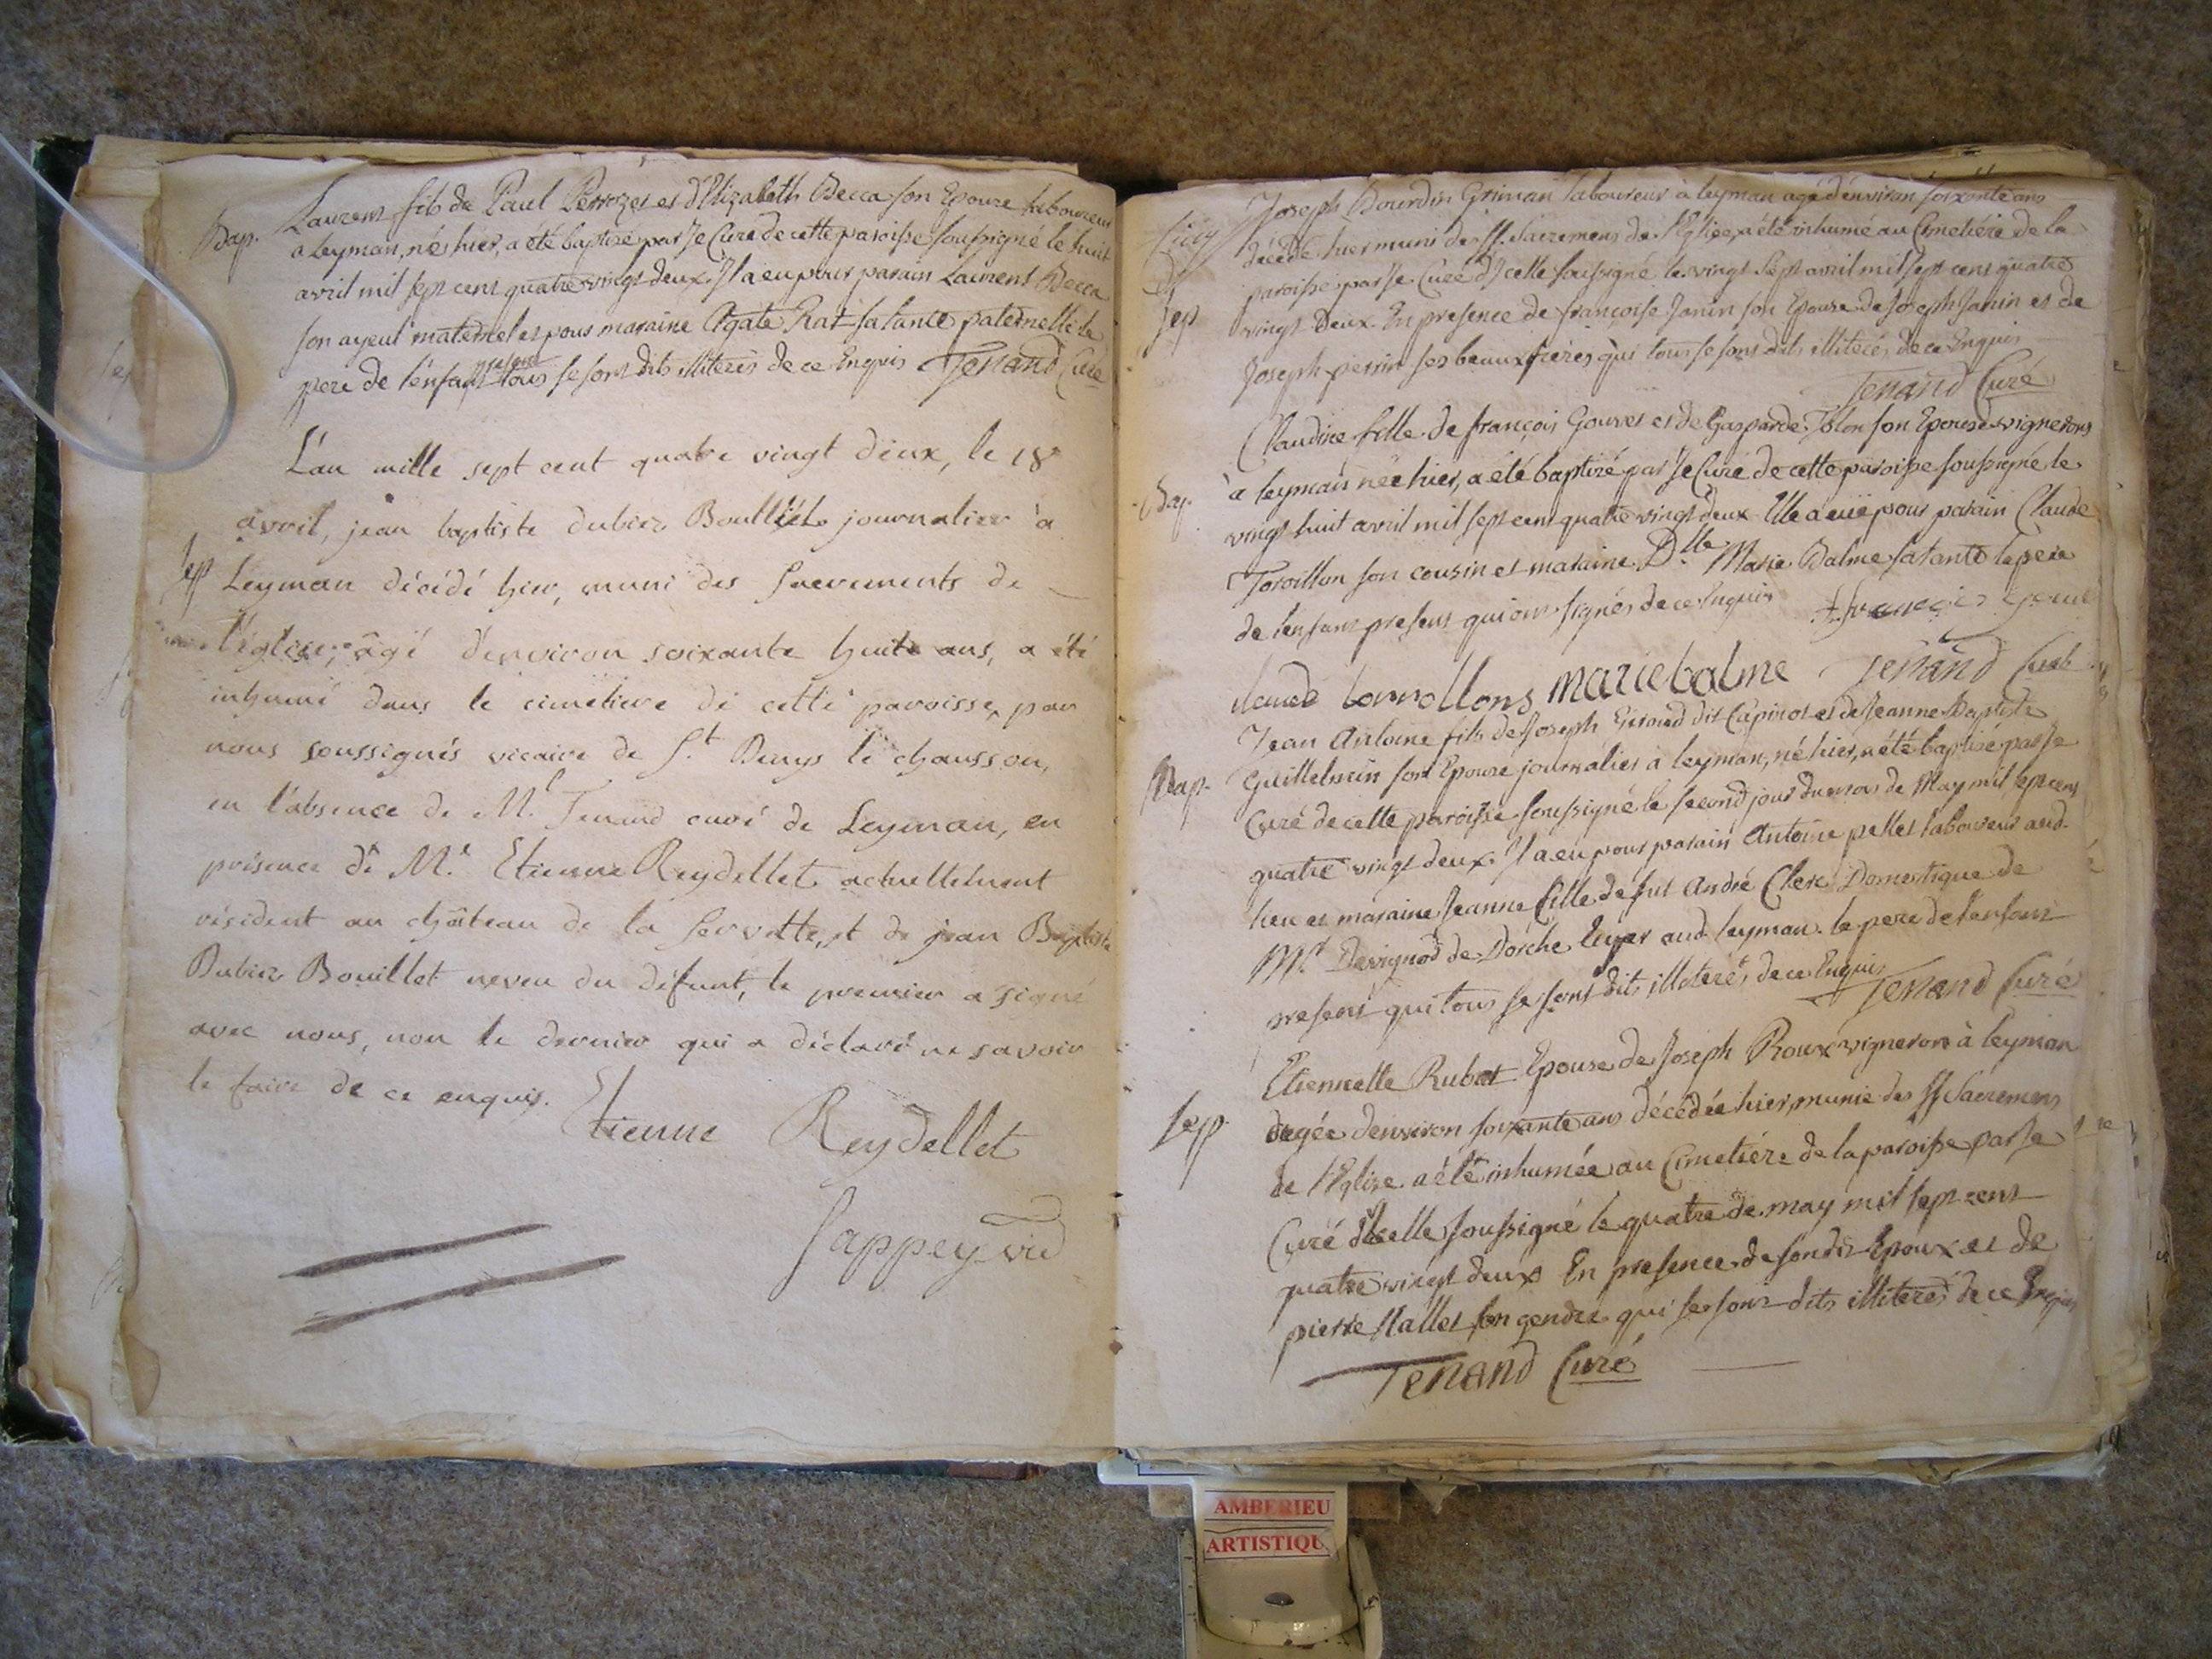 Bap.
Laurent fils de Paul Perrozet et d'Elizabeth Becca son Epouse laboureur
a Leyman, nés hier, a été baptisé par le Curé de cette paroisse soussigné le huit
avril mil sept cent quatre vingt deux. Il a eu pour parain Laurent Becca
son ayeul maternel et pour maraine Agate Rat sa tante paternelle le
pere de l'enfant present tous se sont dits illiterés de ce Enquis Tenand Curé
L'an mille sept cent quatre vingt deux, le 18
avril, jean baptiste dubier Boulliet journalier à
Sep
Leyman décédé hier, muni des Sacrements de
l'église, âgé d'environ soixante huit ans, a été
inhumé dans le cimétiere de cette paroisse, par
nous soussignés vicaire de St. Denys le chausson,
en l'absence de Mr. Tenand curé de Leyman, en
présence de Mr. Etienne Reydellet actuellement
résident au château de la Servette, et de jean Baptiste
Dubier Bouillet neveu du défunt, le premier a signé
avec nous, non le dernier qui a déclaré ne savoir
le faire de ce enquis.
Etienne Reydellet
Sappey vic
Joseph Bourdin Griman laboureur à leyman agé d'environ soixante ans
décédé hier muni des SS. Sacremens de l'Eglise, a été inhumé au Cimetiére de la
paroisse par le Curé d'Icelle soussigné le vingt sept avril mil sept cent quatre
Sep
vingt deux. En presence de françoise Janin son Epouse de Joseph Janin et de
Joseph perrin ses beaux freres qui tous se sont dits illiterés de ce Enquis
Tenand Curé
Claudine fille de françois Gouvet et de Gasparde Tolon son Epouse vignerons
Bap.
a leyman née hier, a été baptizé par le Curé de cette paroisse soussigné le
vingt huit avril mil sept cent quatre vingt deux Elle a eüe pour parain Claude
Toroillon son cousin et maraine Dlle Marie Balme sa tante le pere
de l'enfant present qui ont signés de ce Enquis francois
claude torrollons marie balme Tenand Curé
Jean Antoine fils de Joseph Giroud dit Capinot et de Jeanne Baptiste
Bap.
Guillelmin son Epouse journalier à leyman, né hier, a été baptisé par le
Curé de cette paroisse soussigné le second jour du mois de May mil sept cent
quatre vingt deux. Il a eu pour parain Antoine pellet laboureur aud.
lieu et maraine Jeanne fille de fut André Clerc Domestique de
Mr. Devignod de Dorche Ecuyer aud. leyman le pere de l'enfant
present qui tous se sont dits illiterés de ce Enquis
Tenand Curé
Etiennette Rubat Epouse de Joseph Roux vigneron à leyman
Sep.
agée d'environ soixante ans décédée hier, munie des SS Sacremens
de l'Eglise a été inhumée au Cimetiére de la paroisse par le
Curé d'Icelle soussigné le quatre de may mil sept cent
quatre vingt deux En presence de sondit Epoux et de
pierre Hallet son gendre qui se sont dits illiterés de ce Enquis
Tenand Curé
AMBERIEU
ARTISTIQU